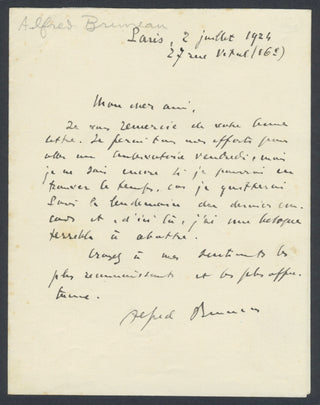 Alfred Bruneau
Paris, 2 juillet 1924
27 rue Vital (16e)
Mon cher ami,
Je vous remercie de votre bonne
lettre. Je ferai tous mes efforts pour
aller au Conservatoire vendredi, mais
je ne sais encore si je pourrai en
trouver le temps, car je quitterai
Paris le lendemain du dernier con-
cours et, d'ici là, j'ai une besogne
terrible à abattre.
Croyez à mes sentiments les
plus reconnaissants et les plus affec-
tueux.
Alfred Bruneau